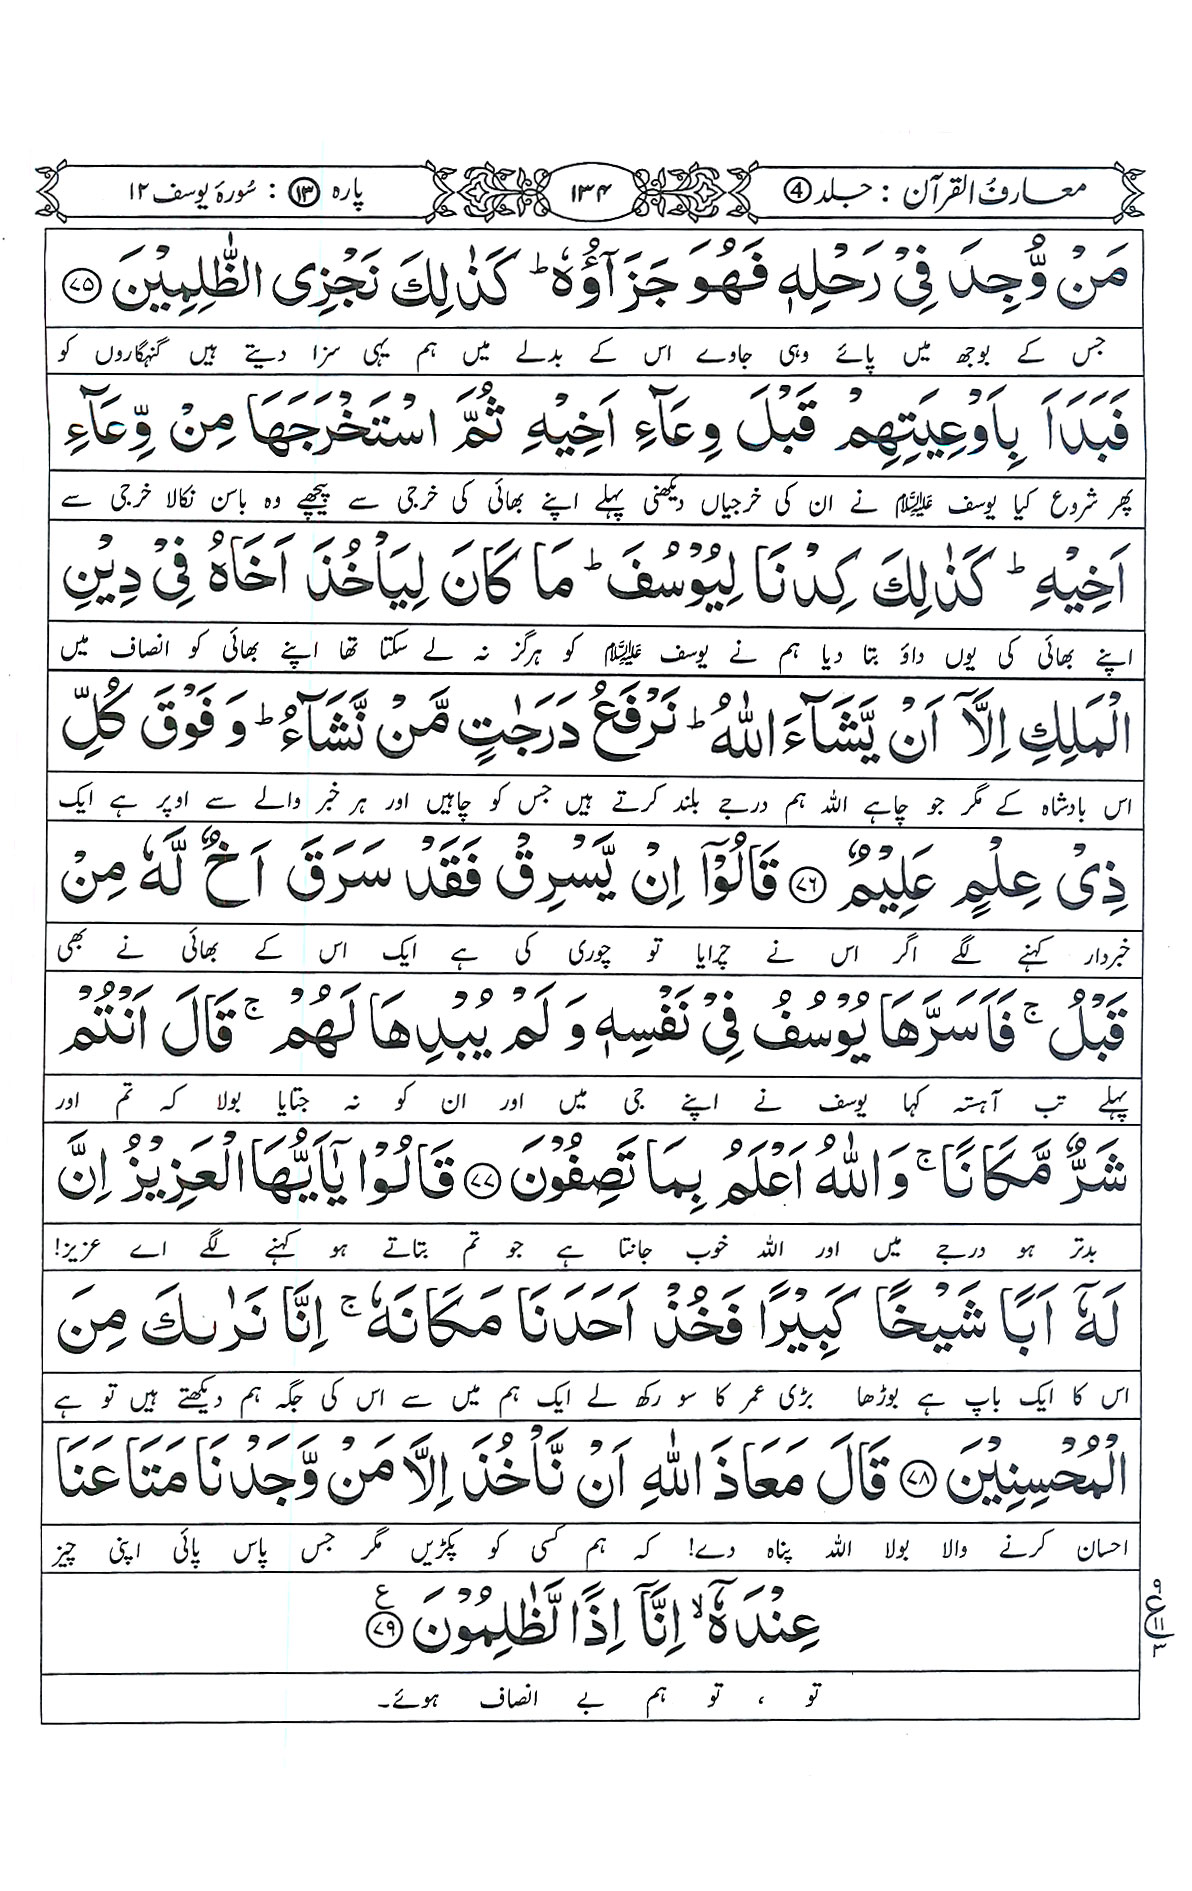 معارف القرآن : جلد ④
۱۳۴
پارہ ⑬ : سُورۂ یوسف ۱۲
مَنْ وُّجِدَ فِیْ رَحْلِهٖ فَهُوَ جَزَآؤُهٗ ؕ كَذٰلِكَ نَجْزِی الظّٰلِمِیْنَ ۷۵
جس کے بوجھ میں پائے وہی جاوے اس کے بدلے میں ہم یہی سزا دیتے ہیں گنہگاروں کو
فَبَدَاَ بِاَوْعِیَتِهِمْ قَبْلَ وِعَآءِ اَخِیْهِ ثُمَّ اسْتَخْرَجَهَا مِنْ وِّعَآءِ
پھر شروع کیا یوسف علیہ السلام نے ان کی خرجیاں دیکھنی پہلے اپنے بھائی کی خرجی سے پیچھے وہ باسن نکالا خرجی سے
اَخِیْهِ ؕ كَذٰلِكَ كِدْنَا لِیُوْسُفَ ؕ مَا كَانَ لِیَاْخُذَ اَخَاهُ فِیْ دِیْنِ
اپنے بھائی کی یوں داؤ بتا دیا ہم نے یوسف علیہ السلام کو ہرگز نہ لے سکتا تھا اپنے بھائی کو انصاف میں
الْمَلِكِ اِلَّاۤ اَنْ یَّشَآءَ اللّٰهُ ؕ نَرْفَعُ دَرَجٰتٍ مَّنْ نَّشَآءُ ؕ وَ فَوْقَ كُلِّ
اس بادشاہ کے مگر جو چاہے اللہ ہم درجے بلند کرتے ہیں جس کو چاہیں اور ہر خبر والے سے اوپر ہے ایک
ذِیْ عِلْمٍ عَلِیْمٌ ۷۶ قَالُوْۤا اِنْ یَّسْرِقْ فَقَدْ سَرَقَ اَخٌ لَّهٗ مِنْ
خبردار کہنے لگے اگر اس نے چرایا تو چوری کی ہے ایک اس کے بھائی نے بھی
قَبْلُ ۚ فَاَسَرَّهَا یُوْسُفُ فِیْ نَفْسِهٖ وَ لَمْ یُبْدِهَا لَهُمْ ۚ قَالَ اَنْتُمْ
پہلے تب آہستہ کہا یوسف نے اپنے جی میں اور ان کو نہ جتایا بولا کہ تم اور
شَرٌّ مَّكَانًا ۚ وَ اللّٰهُ اَعْلَمُ بِمَا تَصِفُوْنَ ۷۷ قَالُوْا یٰۤاَیُّهَا الْعَزِیْزُ اِنَّ
بدتر ہو درجے میں اور اللہ خوب جانتا ہے جو تم بتاتے ہو کہنے لگے اے عزیز!
لَهٗۤ اَبًا شَیْخًا كَبِیْرًا فَخُذْ اَحَدَنَا مَكَانَهٗ ۚ اِنَّا نَرٰىكَ مِنَ
اس کا ایک باپ ہے بوڑھا بڑی عمر کا سو رکھ لے ایک ہم میں سے اس کی جگہ ہم دیکھتے ہیں تو ہے
الْمُحْسِنِیْنَ ۷۸ قَالَ مَعَاذَ اللّٰهِ اَنْ نَّاْخُذَ اِلَّا مَنْ وَّجَدْنَا مَتَاعَنَا
احسان کرنے والا بولا اللہ پناہ دے! کہ ہم کسی کو پکڑیں مگر جس پاس پائی اپنی چیز
عِنْدَهٗۤ ۙ اِنَّاۤ اِذًا لَّظٰلِمُوْنَ ۷۹ ع
تو ، تو ہم بے انصاف ہوئے۔